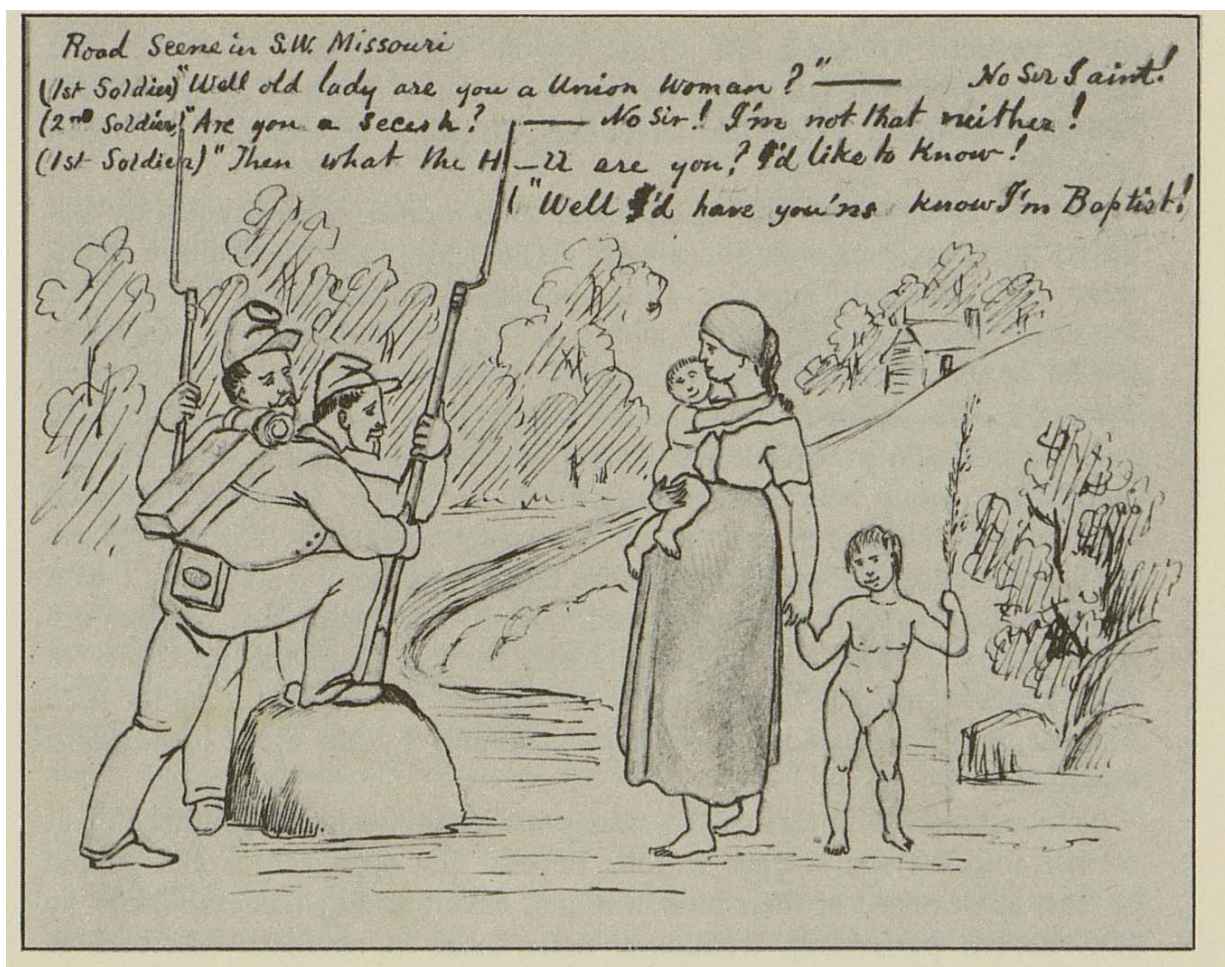 Road Scene in S.W. Missouri
(1st Soldier) "Well old lady are you a Union Woman?" — No Sir I aint!
(2nd Soldier) "Are you a secesh? — No Sir! I'm not that neither!
(1st Soldier) "Then what the H—ll are you? I'd like to know!
"Well I'd have you'ns know I'm Baptist!